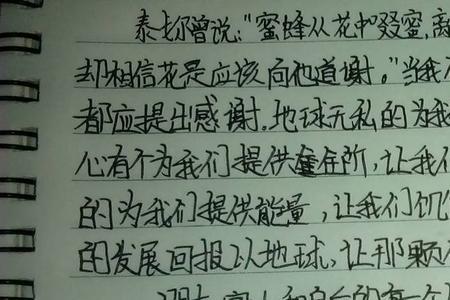 泰戈尔曾说:"蜜蜂从花中啜蜜,离
却相信花是应该向他道谢。"当我
都应提出感谢.地球无私的为我
心有个为我们提供 阶,让我们
的为我们提供能量,让我们饥
的发展回报以地球,让那颗